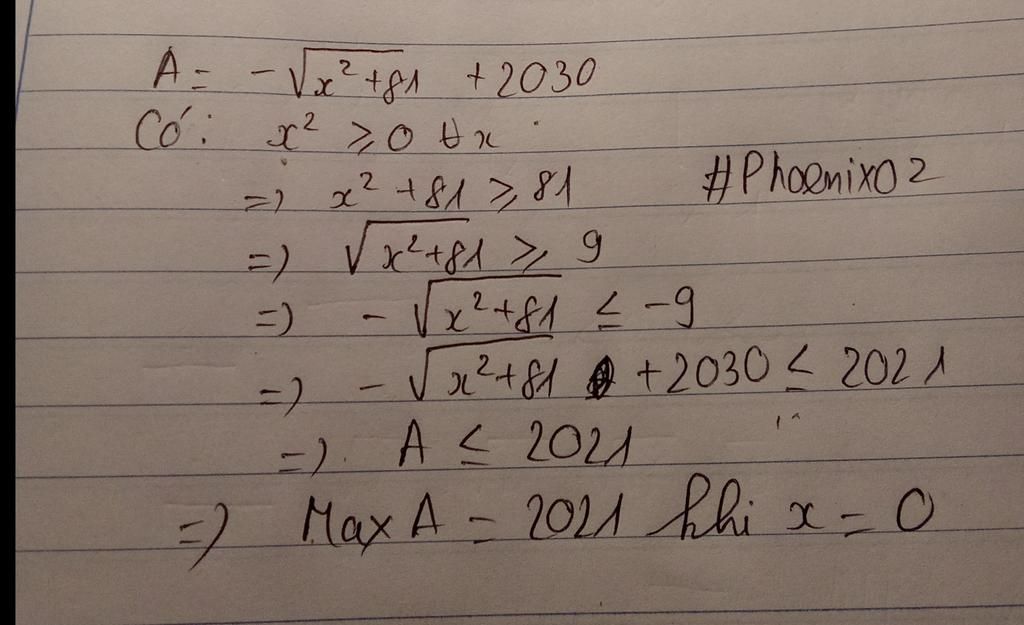 A = -√(x²+81) +2030
Có: x² ≥ 0 ∀x
=) x² +81 ≥ 81
#Phoenix02
=) √(x²+81) ≥ 9
=) -√(x²+81) ≤ -9
=) -√(x²+81) +2030 ≤ 2021
=) A ≤ 2021
=) Max A = 2021 khi x = 0